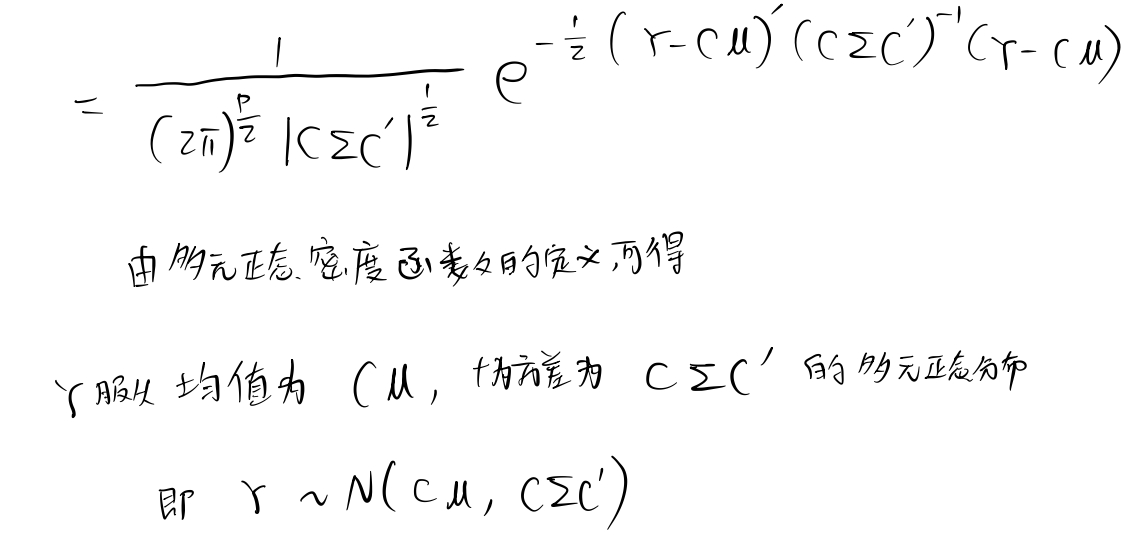 = \frac{1}{(2π)^{\frac{p}{2}} |CΣC'|^{\frac{1}{2}}} e^{-\frac{1}{2} (Y-Cμ)' (CΣC')^{-1} (Y-Cμ)}
由多元正态密度函数的定义可得
Y服从均值为 Cμ, 协方差为 CΣC' 的多元正态分布
即 Y ~ N(Cμ, CΣC')